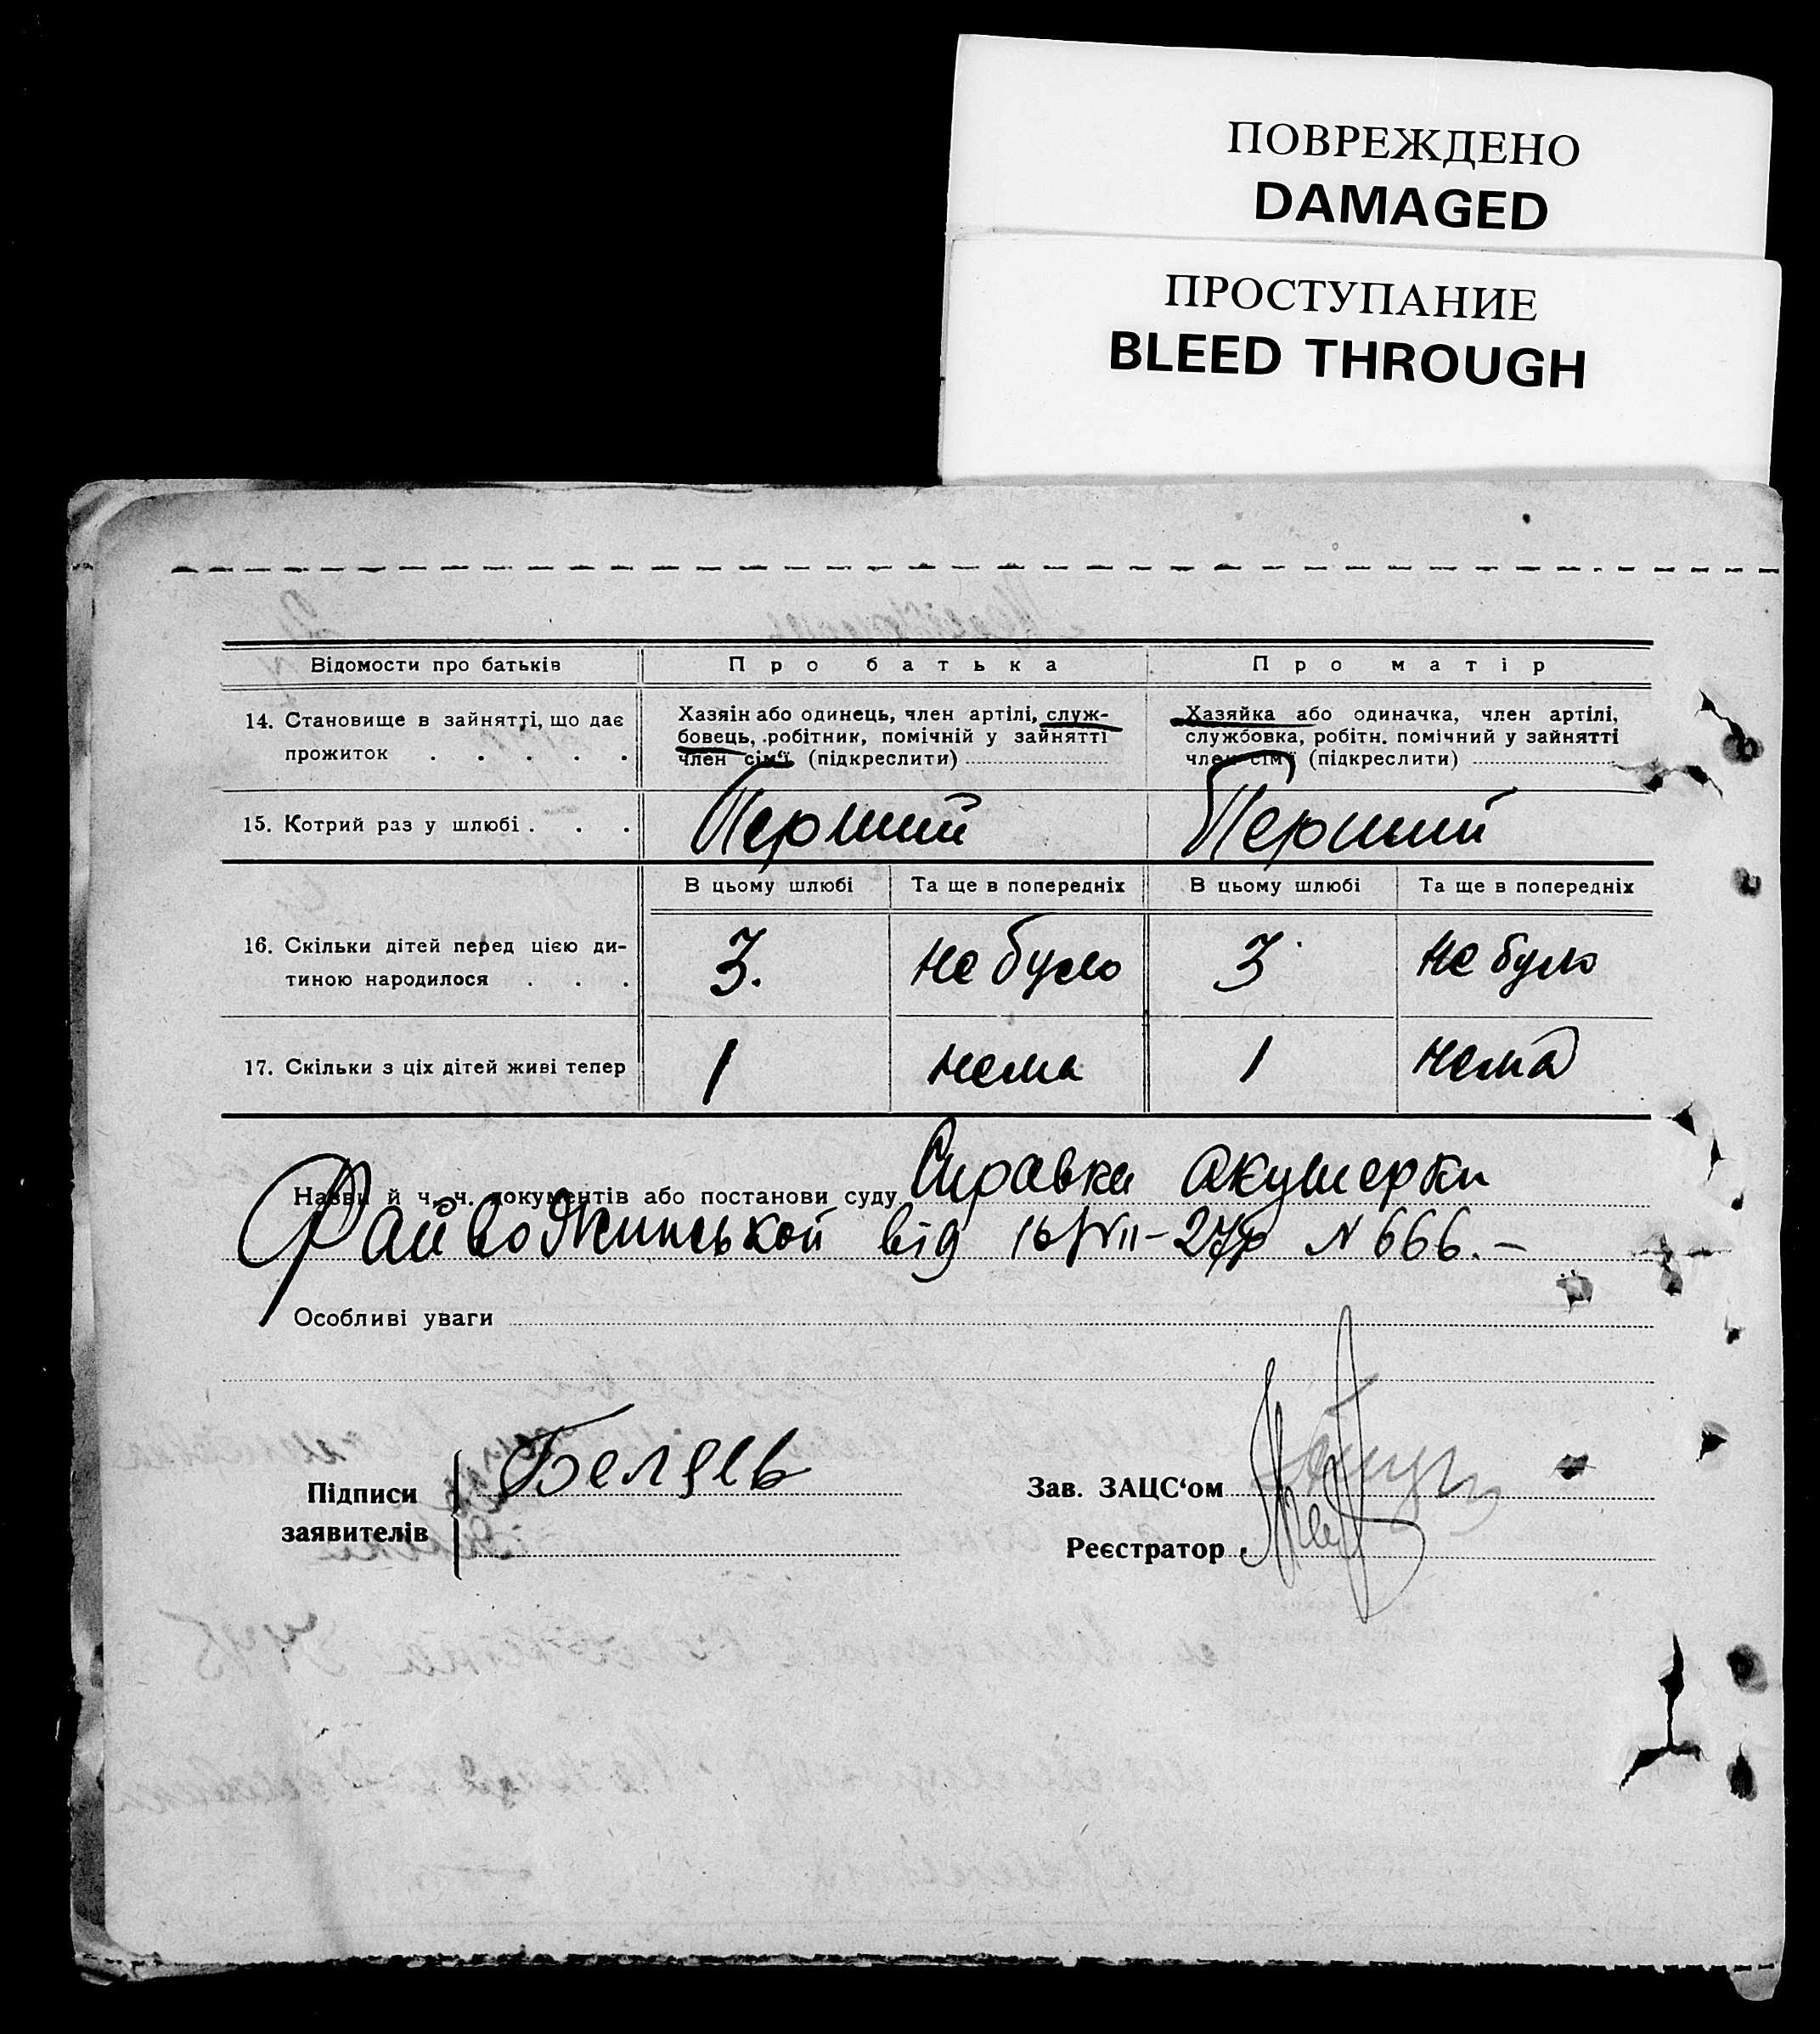 ПОВРЕЖДЕНО
DAMAGED
ПРОСТУПАНИЕ
BLEED THROUGH
Відомости про батьків
Про батька
Про матір
14. Становище в зайнятті, що дає
прожиток . . . . .
Хазяін або одинець, член артілі, служ-
бовець, робітник, помічній у зайнятті
член сім'ї (підкреслити)
Хазяйка або одиначка, член артілі,
службовка, робітн. помічний у зайнятті
член сім'ї (підкреслити)
15. Котрий раз у шлюбі . . .
Перший
Перший
В цьому шлюбі
Та ще в попередніх
В цьому шлюбі
Та ще в попередніх
16. Скільки дітей перед цією ди-
тиною народилося . . .
3.
не було
3
не було
17. Скільки з ціх дітей живі тепер
1
нема
1
нема
Назви й ч. ч. документів або постанови суду Справка акушерки
від 16/VII-27р N 666.-
Особливі уваги
Підписи
заявителів
Беляев
Зав. ЗАЦС'ом
Реєстратор